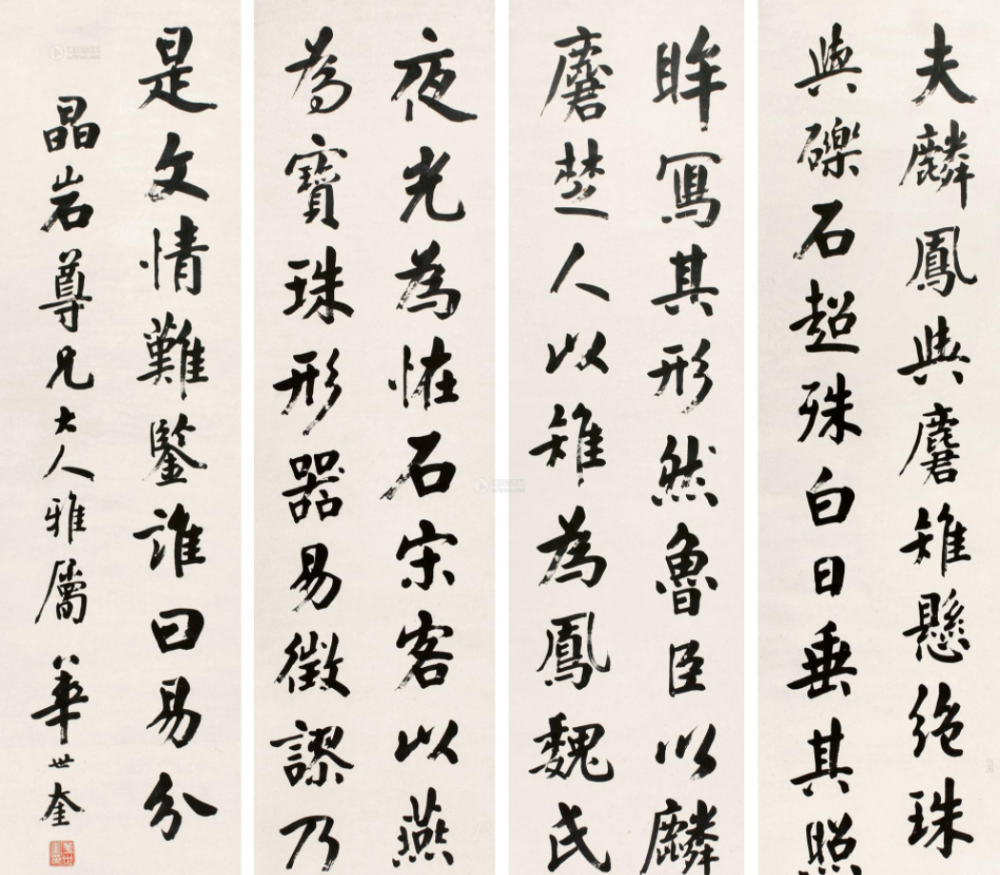 夫麟鳳與麏雉懸絕珠
與礫石超殊白日垂其照
眸寫其形然魯臣以麟
麏楚人以雉為鳳魏民
夜光為恠石宋客以燕
為寶珠形器易徵謬乃
是文情難鑒誰曰易分
晶岩尊兄大人雅屬 華世奎